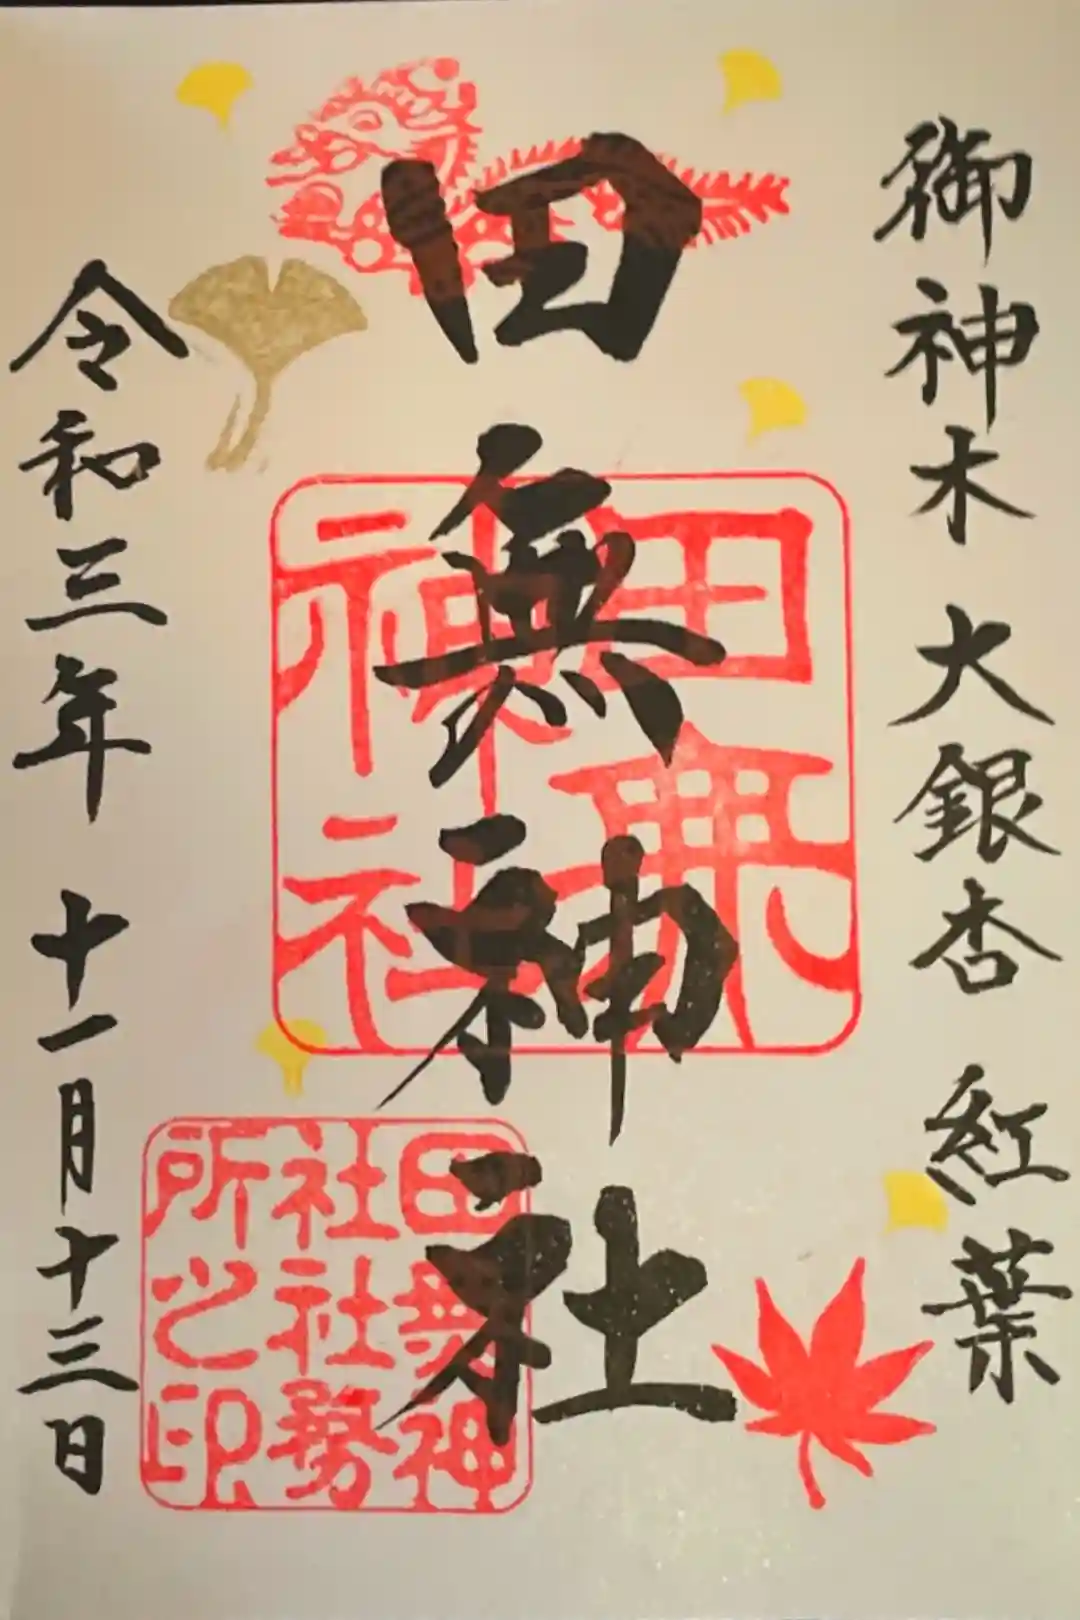 御神木 大銀杏 紅葉
田無神社
令和三年 十一月十三日
田無
神社
田無神
社社務
所之印